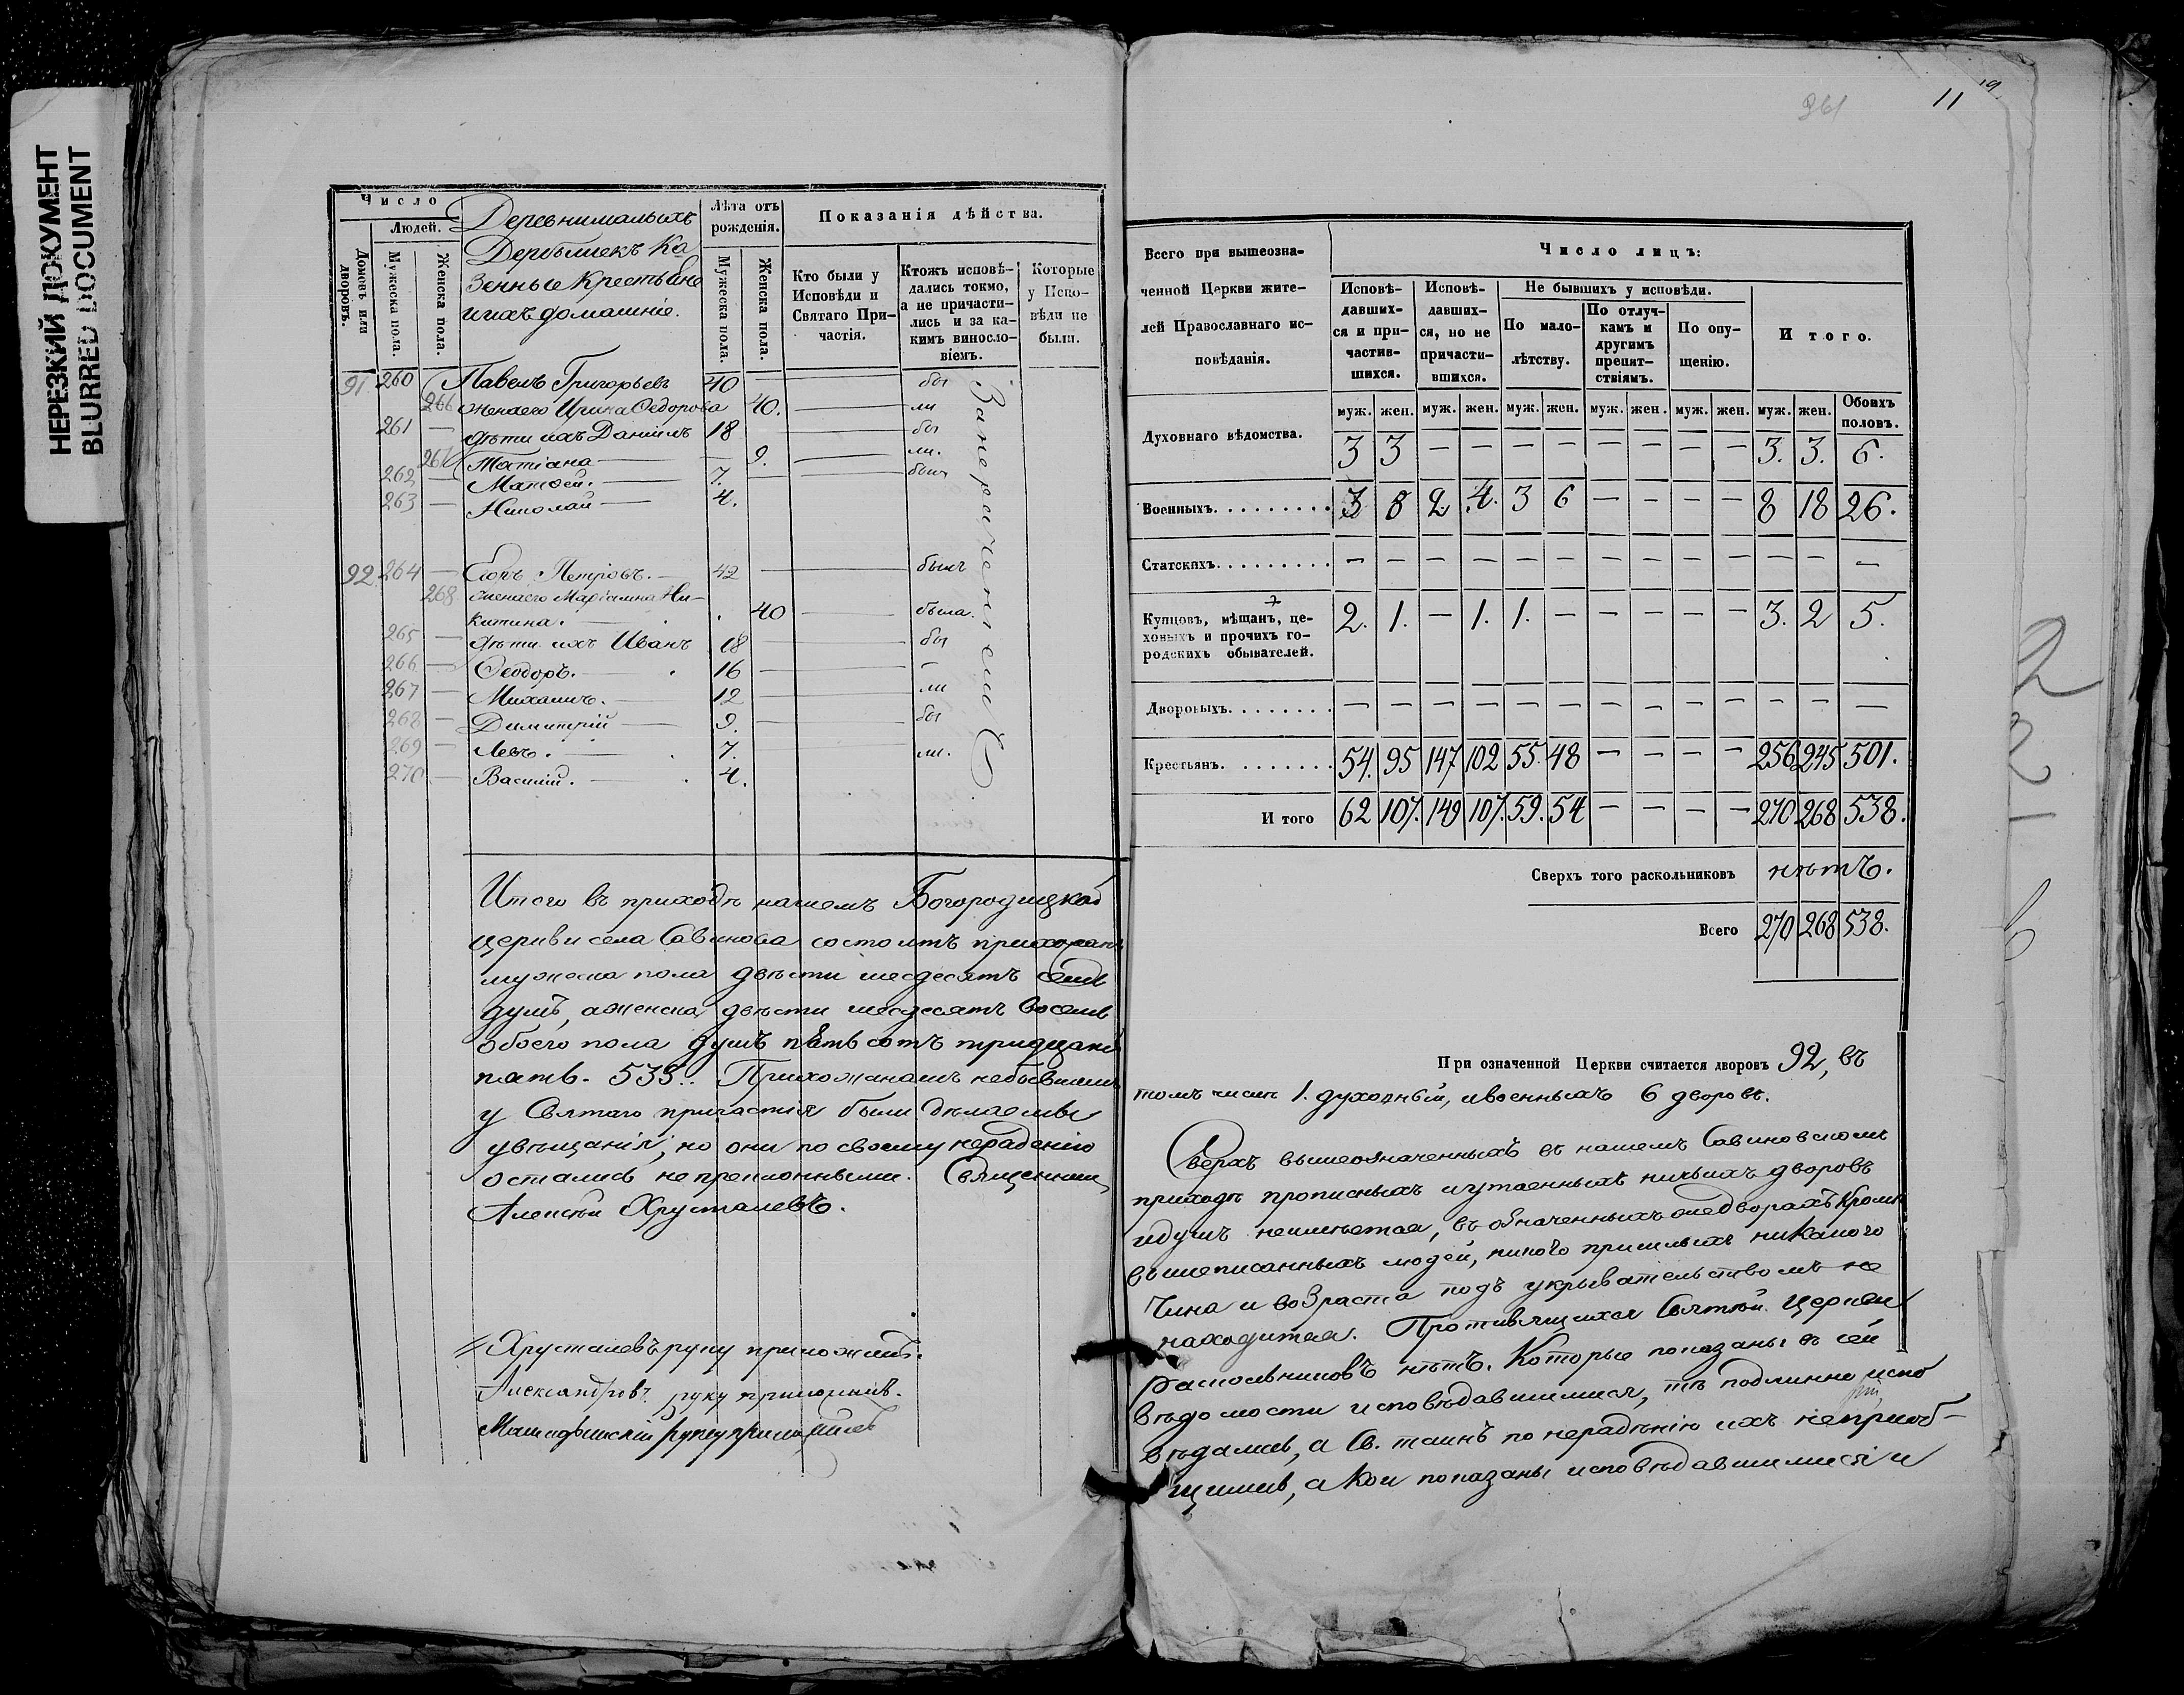 НЕРЕЗКИЙ ДОКУМЕНТ
BLURRED DOCUMENT
Число
Людей.
Домовъ или дворовъ.
Мужеска пола.
Женска пола.
Деревни малыхъ
Дербышекъ Ка
зенные крестьяне
и ихъ домашніе.
Лѣта отъ рожденія.
Мужеска пола.
Женска пола.
Показанія дѣйства.
Кто были у Исповѣди и Святаго Причастія.
Ктожъ исповѣ-
дались токмо,
а не причасти-
лись и за ка-
кимъ винословіемъ.
Которые у Испо-
вѣди не были.
91 260 Павелъ Григорьевъ 40 бы
266 жена его Ирина Ѳедорова 40. ли
261 — дѣти ихъ Даніилъ 18 бы
267 Татіана 9. ли.
262 — Матѳей. 7. былъ
263 — Николай 4.
92 264 — Петровъ. 42 былъ
268 жена его Маріамна Ни-
китина. 40 была.
265 — дѣти ихъ Иванъ 18 бы
266 — Ѳеодоръ. 16 —
267 — Михаилъ. 12 ли
268 — Димитрій 9. бы
269 — Левъ. 7. ли.
270 — Василій. 4.
За нераченіемъ
Итого въ приходѣ нашемъ Богородицкой
церкви села Савинова состоитъ прихожанъ
мужеска пола двѣсти шесдесятъ семь
душъ, а женска двѣсти шесдесятъ восемь
обоего пола душъ пять сотъ тридцать
пять. 535. Прихожанамъ небывшимъ
у Святаго причастія были дѣлаемы
увѣщанія, но они по своему нерадѣнію
остались непреклонными. Священникъ
Алексѣй Хрусталевъ.
Хрусталевъ руку приложилъ.
Александровъ руку приложилъ.
руку приложилъ
361
11
19
Всего при вышеозна-
ченной Церкви жите-
лей Православнаго ис-
повѣданія.
Число лицъ:
Исповѣ-
давших-
ся и при-
частив-
шихся.
Исповѣ-
давших-
ся, но не
причасти-
вшихся.
Не бывшихъ у исповѣди.
По мало-
лѣтству.
По отлуч-
камъ и
другимъ
препят-
ствіямъ.
По опу-
щенію.
Итого.
муж. жен. муж. жен. муж. жен. муж. жен. муж. жен. муж. жен. Обоихъ половъ.
Духовнаго вѣдомства. 3 3 — — — — — — — — 3. 3. 6.
Военныхъ. 3 8 2. 4. 3 6 — — — — 8 18 26.
Статскихъ. — — — — — — — — — — — — —
Купцовъ, мѣщанъ, це-
ховыхъ и прочихъ го-
родскихъ обывателей. 2. 1. — 1. 1. — — — — — 3. 2 5.
Дворовыхъ. — — — — — — — — — — — — —
Крестьянъ. 54. 95 147 102 55. 48 — — — — 256 245 501.
И того 62 107. 149 107. 59. 54 — — — — 270 268 538.
Сверхъ того раскольниковъ нѣтъ.
Всего 270 268 538.
При означенной Церкви считается дворовъ 92, въ
томъ числѣ 1. духовный, и военныхъ 6 дворовъ.
Сверхъ вышеозначенныхъ въ нашемъ Савиновскомъ
приходѣ прописныхъ и утаенныхъ никакихъ дворовъ
и душъ неимѣется, въ означенныхъ же дворахъ кромѣ
вышеписанныхъ людей, никого пришлыхъ никакого
чина и возраста подъ укрывательствомъ не
находится. Противящихся Святѣй Церкви
раскольниковъ нѣтъ. Которые показаны въ сей
вѣдомости исповѣдавшимися, тѣ подлинно испо
вѣдались, а Св. таинъ по нерадѣнію ихъ непріоб-
щились, а кои показаны исповѣдавшимися и